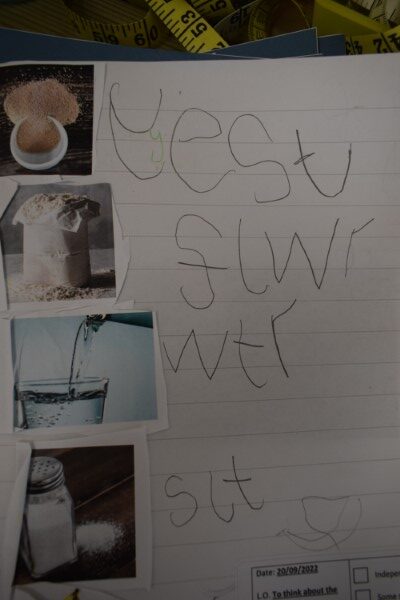 yest
y
flwr
wtr
slt
Date: 20/09/2022
Indepen
L.O. To think about the
Some